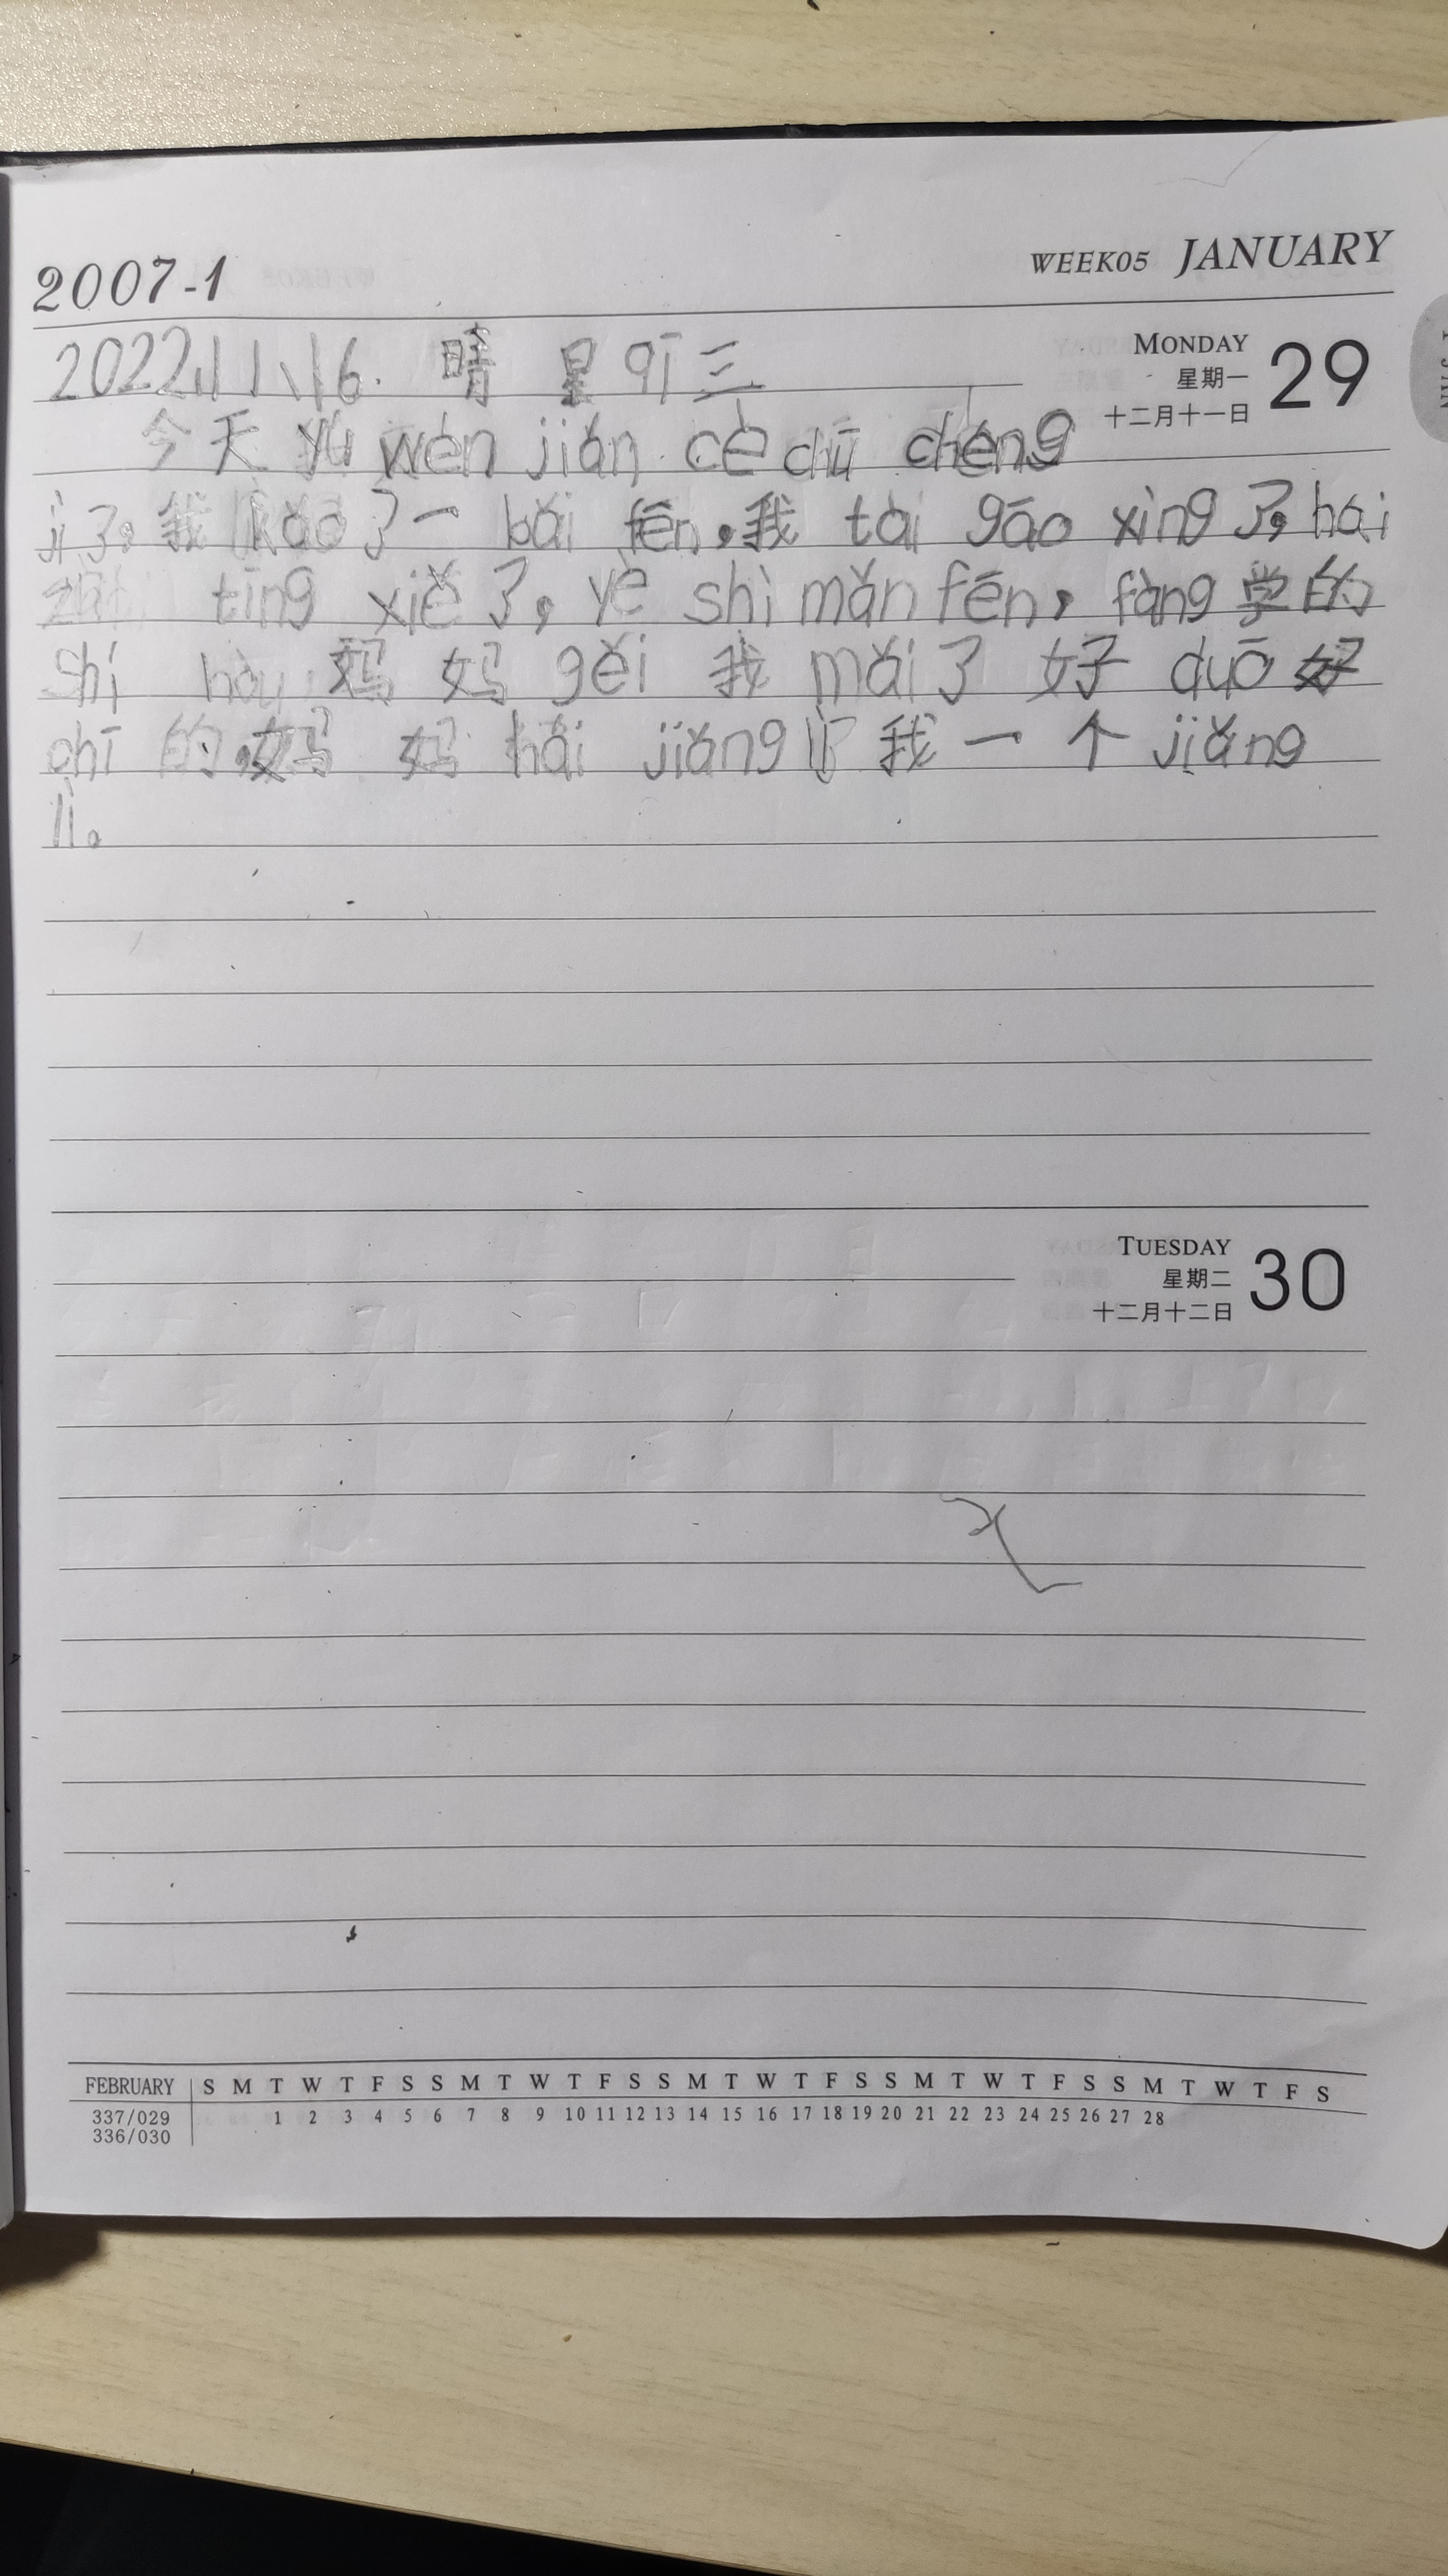 2007-1 WEEK05 JANUARY
2022.11.16. 晴 星qī三
MONDAY
星期一
十二月十一日
29
今天 yǔ wén jiǎn cè chū chéng
jì了。我 kǎo了一 bǎi fēn,我 tài gāo xìng了,hái
tīng xiě了,yě shì mǎn fēn, fàng学的
shí hòu 妈妈 gěi 我 mǎi了 好 duō 好
chī 的,妈妈 hái jiǎng lì 我一个 jiǎng
lì。
TUESDAY
星期二
十二月十二日
30
FEBRUARY S M T W T F S S M T W T F S S M T W T F S S M T W T F S S M T W T F S
337/029 1 2 3 4 5 6 7 8 9 10 11 12 13 14 15 16 17 18 19 20 21 22 23 24 25 26 27 28
336/030